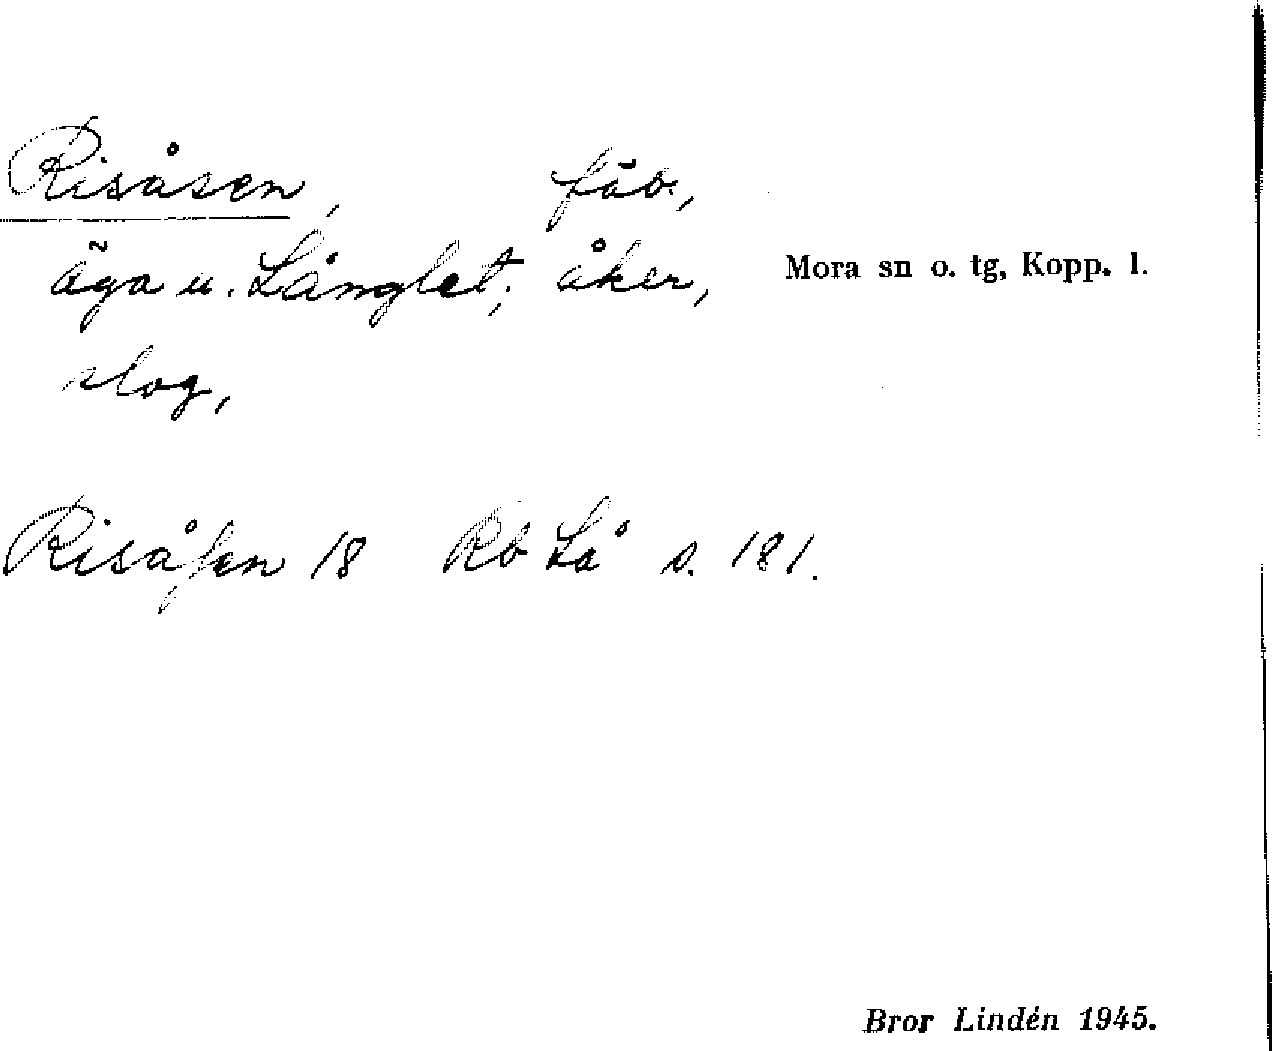 Risåsen, fäb.,
äga u. Långlet; åker,
slog,
Mora sn o. tg, Kopp. l.
Risåſen 18 Rb Lå s. 181.
Bror Lindén 1945.